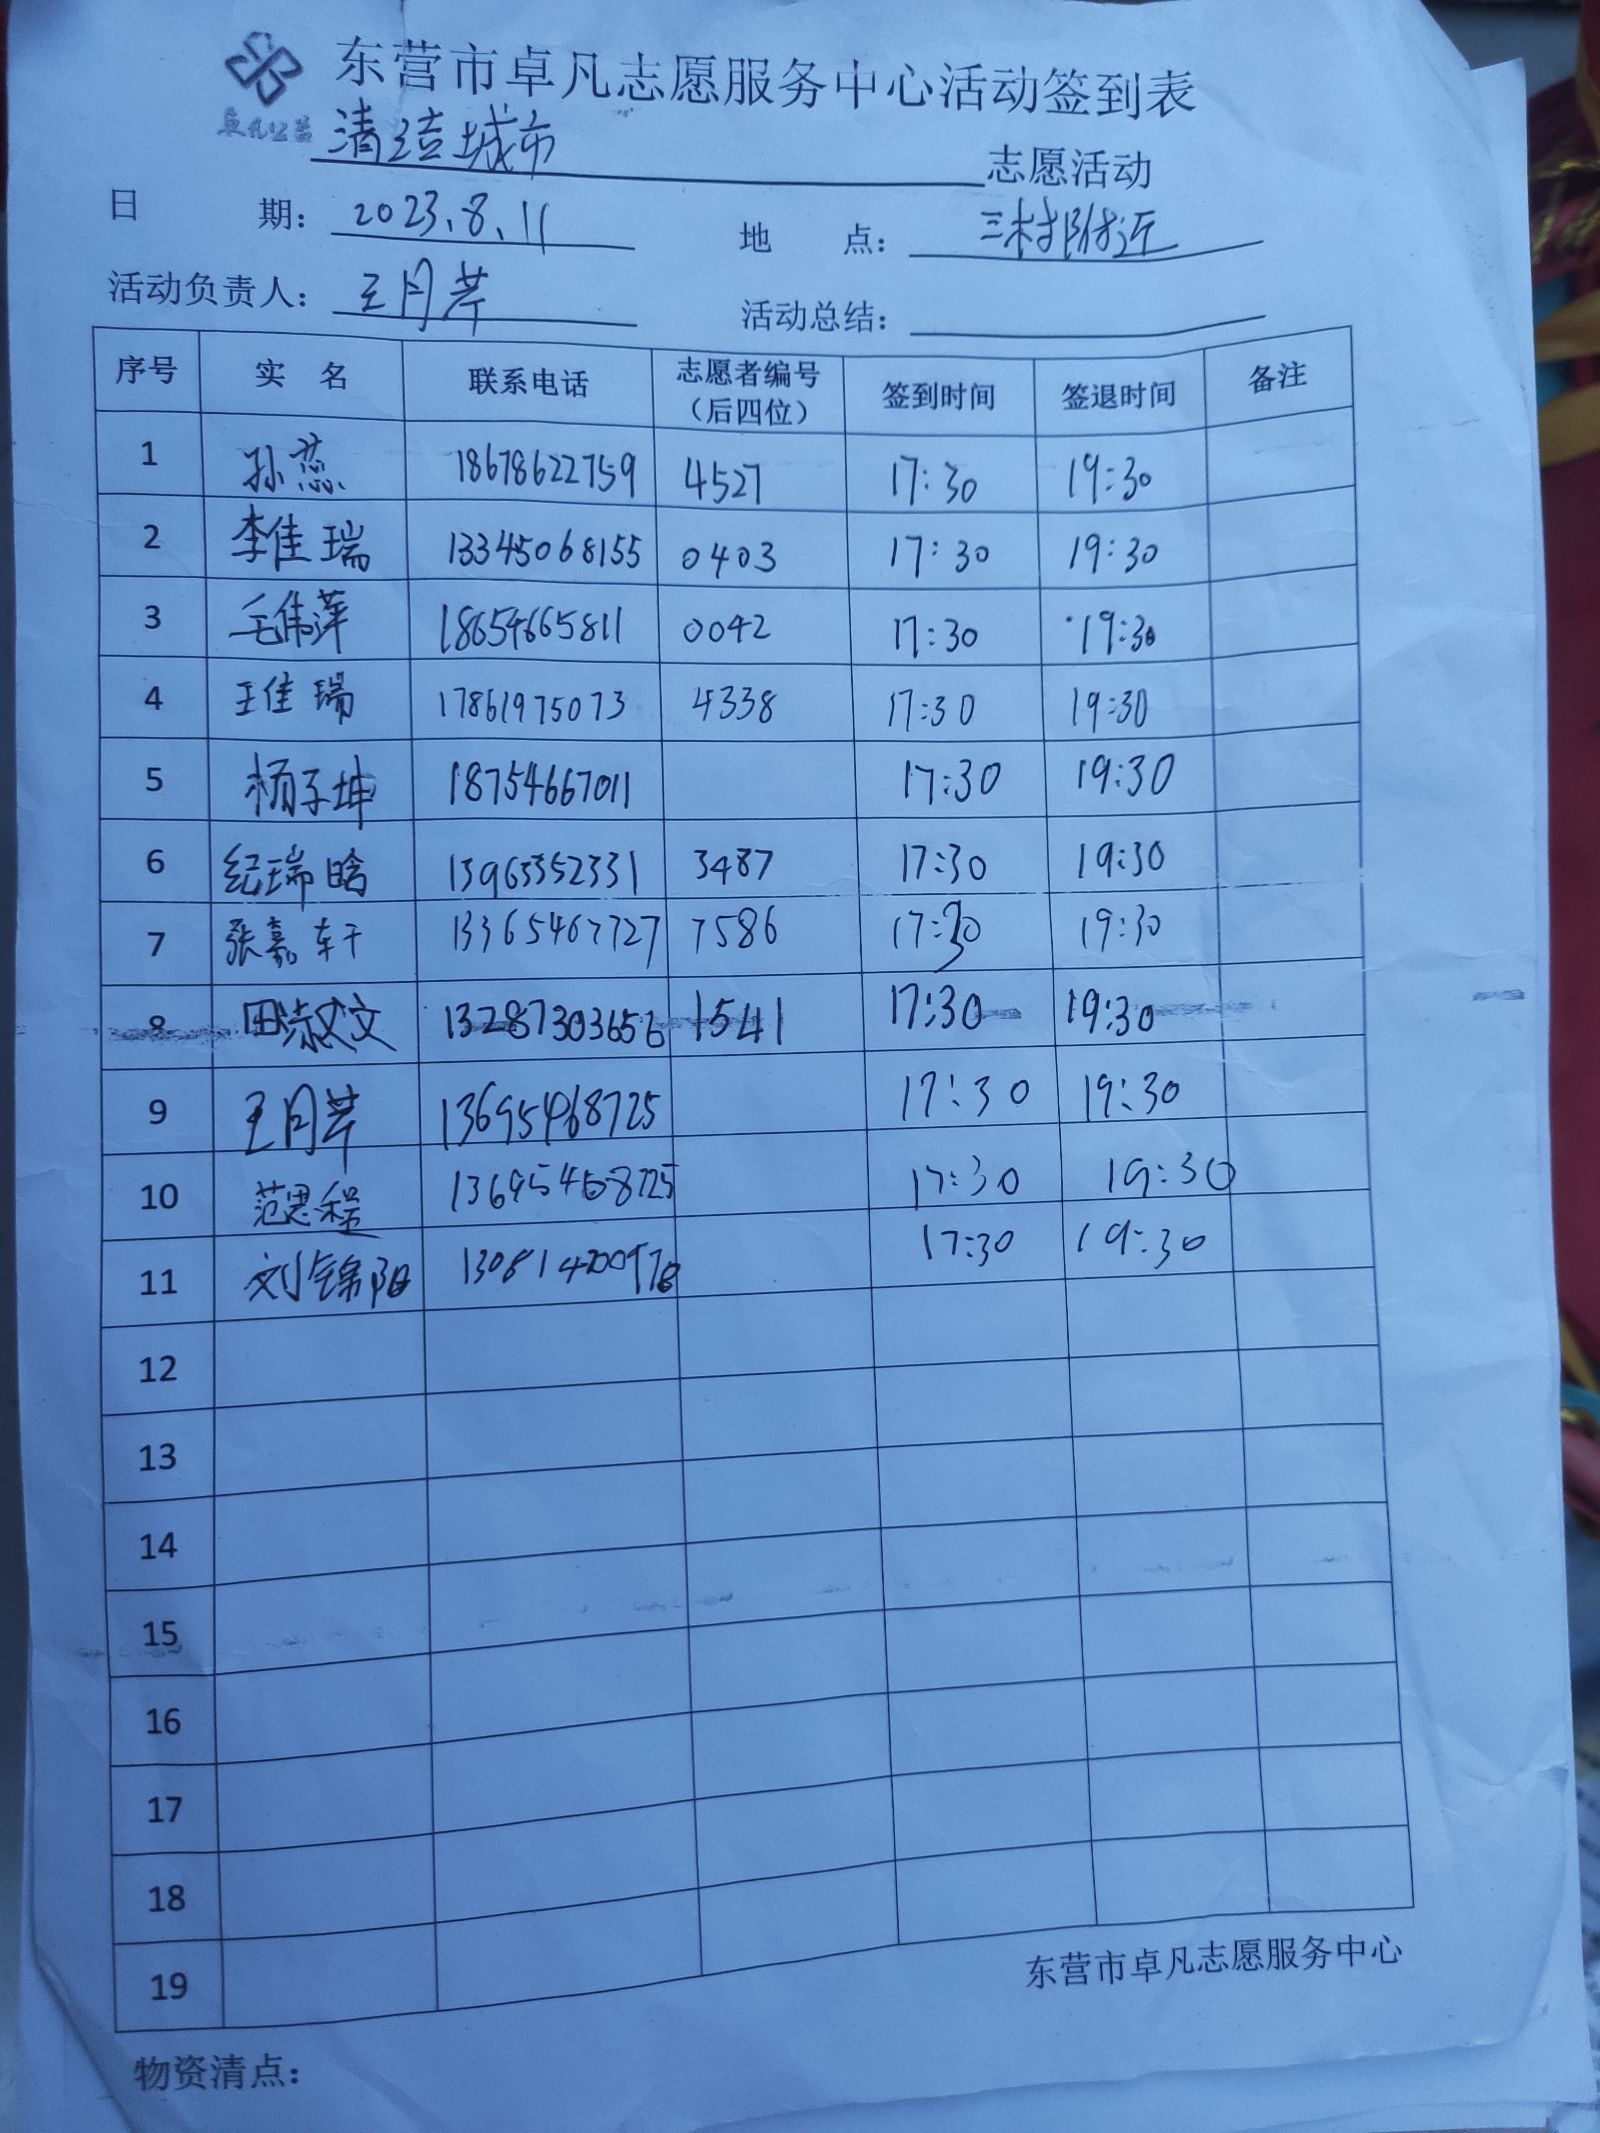 东营市卓凡志愿服务中心活动签到表
卓凡公益
清洁城市 志愿活动
日 期： 2023.8.11 地 点： 三村附近
活动负责人： 王月芹 活动总结：
序号 实 名 联系电话 志愿者编号（后四位） 签到时间 签退时间 备注
1 孙蕊 18678622759 4527 17:30 19:30
2 李佳瑞 13345068155 0403 17:30 19:30
3 毛伟萍 18654665811 0042 17:30 19:30
4 王佳瑞 17861975073 4338 17:30 19:30
5 杨子坤 18754667011 17:30 19:30
6 纪瑞晗 13963352331 3487 17:30 19:30
7 张嘉轩 13365467727 7586 17:30 19:30
8 田淑文 13287303656 1541 17:30 19:30
9 王月芹 13695468725 17:30 19:30
10 范思程 13695468725 17:30 19:30
11 刘锦阳 17:30 19:30
12
13
14
15
16
17
18
19
东营市卓凡志愿服务中心
物资清点：